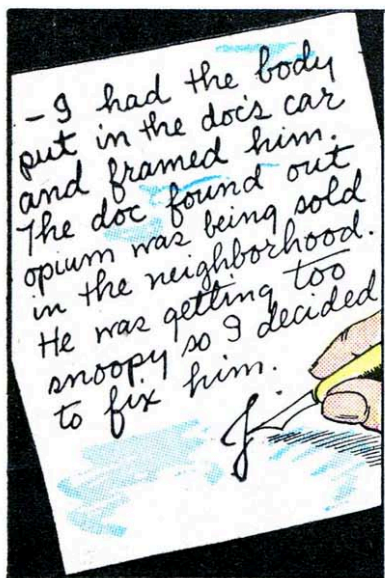 - I had the body
put in the doc's car
and framed him.
The doc found out
opium was being sold
in the neighborhood.
He was getting too
snoopy so I decided
to fix him.
J.